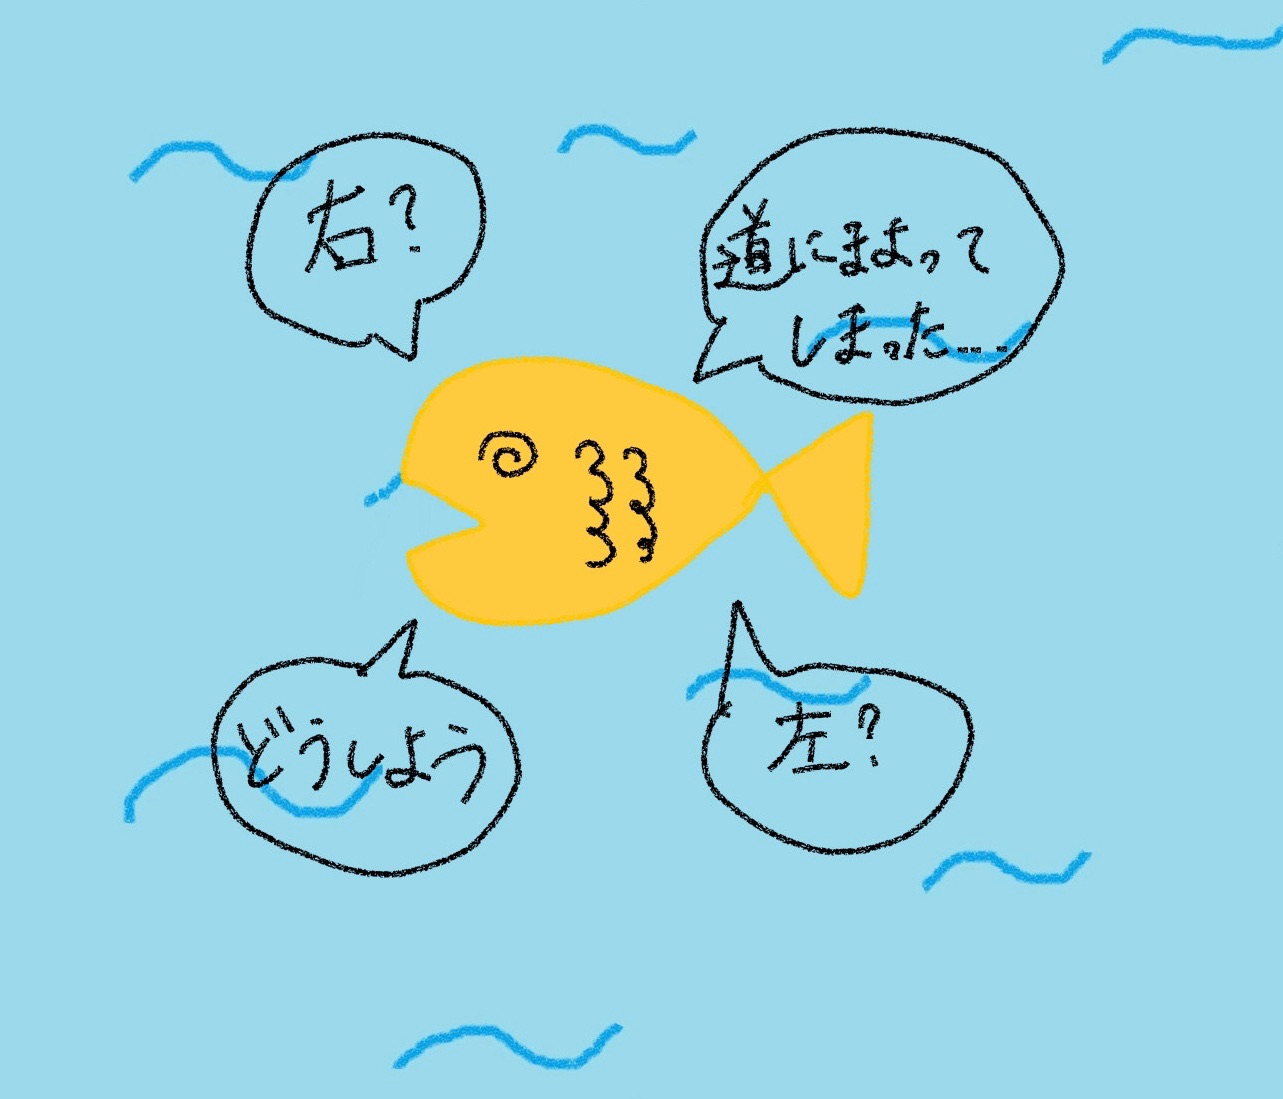 右?
道にまよって
しまった...
どうしよう
左?